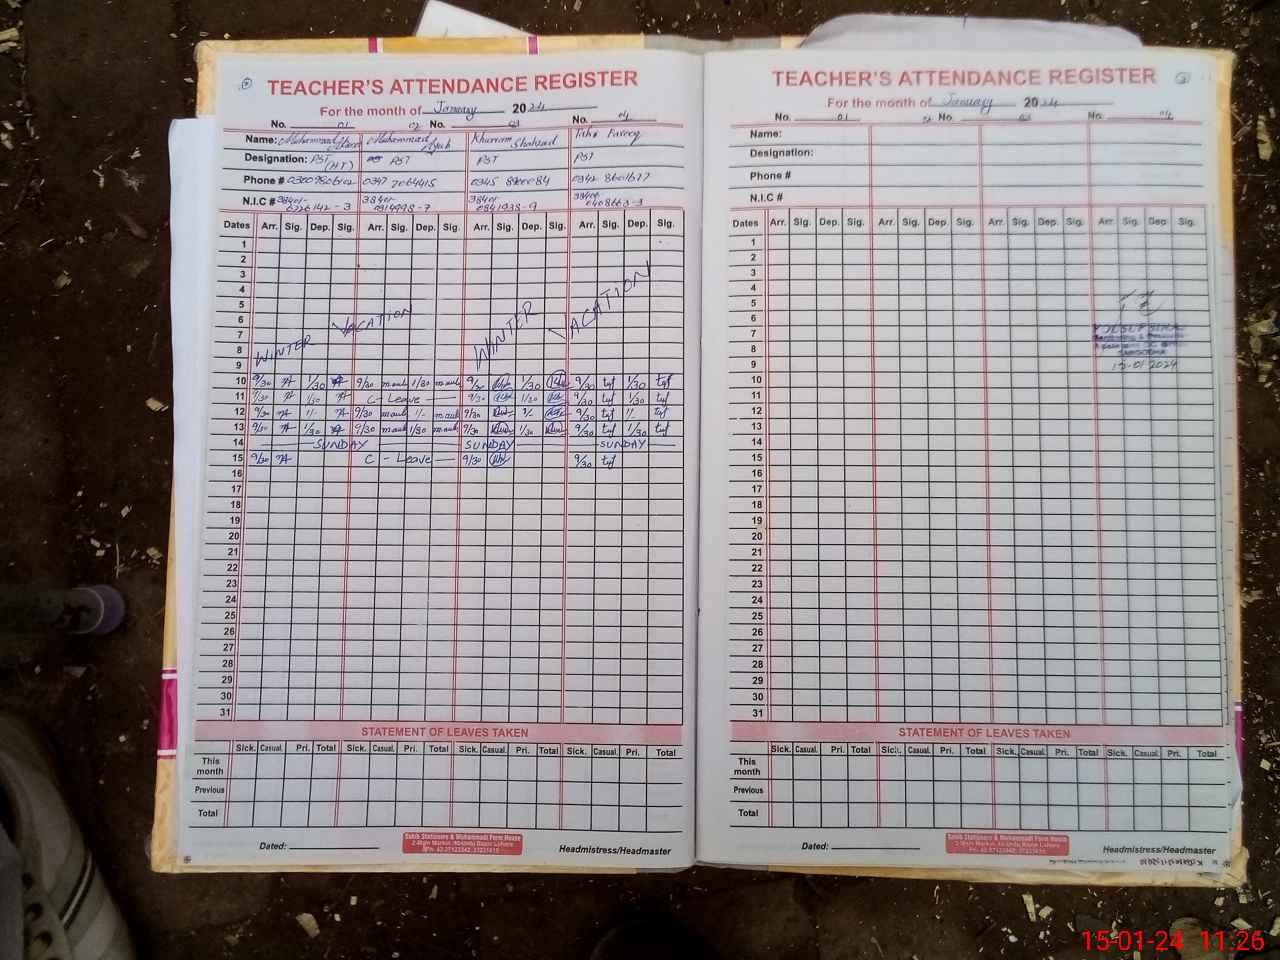 TEACHER'S ATTENDANCE REGISTER
For the month of January 2024
No. 01 02 No. 03 No. 04
Name: Muhammad Muhammad Ayub Khurram Shahzad Farooq
Designation: PST (H.T) PST PST PST
Phone # 0347 7064415 0345 0342 8601677
N.I.C # 38401- 38401- 38401- 38401-
Dates Arr. Sig. Dep. Sig. Arr. Sig. Dep. Sig. Arr. Sig. Dep. Sig. Arr. Sig. Dep. Sig.
1
2
3
4
5
6
7
8
9
WINTER VACATION WINTER VACATION
10 9/30 1/30 9/30 1/30 9/30 1/30 9/30 1/30
11 9/30 1/30 C - Leave 9/30 1/30 9/30 1/30
12 9/30 1/- 9/30 1/- 9/30 1/- 9/30 1/-
13 9/30 1/30 9/30 1/30 9/30 1/30 9/30 1/30
14 SUNDAY SUNDAY SUNDAY
15 9/30 C - Leave 9/30 9/30
16
17
18
19
20
21
22
23
24
25
26
27
28
29
30
31
STATEMENT OF LEAVES TAKEN
Sick. Casual. Pri. Total Sick. Casual. Pri. Total Sick. Casual. Pri. Total Sick. Casual. Pri. Total
This month
Previous
Total
Dated:
Headmistress/Headmaster
TEACHER'S ATTENDANCE REGISTER
For the month of January 2024
No. 01 No. 03 No. 04
Name:
Designation:
Phone #
N.I.C #
Dates Arr. Sig. Dep. Sig. Arr. Sig. Dep. Sig. Arr. Sig. Dep. Sig. Arr. Sig. Dep. Sig.
1
2
3
4
5
6
7
8
9
15-01-2024
10
11
12
13
14
15
16
17
18
19
20
21
22
23
24
25
26
27
28
29
30
31
STATEMENT OF LEAVES TAKEN
Sick. Casual. Pri. Total Sick. Casual. Pri. Total Sick. Casual. Pri. Total Sick. Casual. Pri. Total
This month
Previous
Total
Dated:
Headmistress/Headmaster
15-01-24 11:26